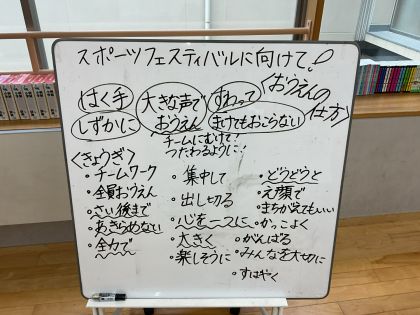 スポーツフェスティバルに向けて!
〈おうえんの仕方〉
はく手
大きな声でおうえん
すわって
しずかに
まけてもおこらない
チームにむけて!
つたわるように!
〈きょうぎ〉
・チームワーク
・全員おうえん
・さい後まで
・あきらめない
・全力で
・集中して
・出し切る
・心を一つに
・大きく
・楽しそうに
・どうどうと
・えがおで
・まちがえてもいい
・かっこよく
・がんばる
・みんなを大切に
・すばやく